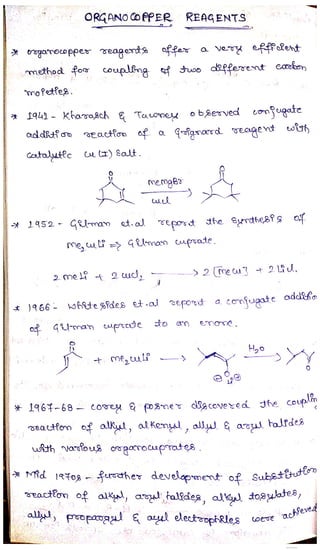 ORGANOCOPPER REAGENTS
* organocopper reagents offer a very efficient
method for coupling of two different carbon
moieties.
* 1941 - Kharasch & Tawney observed conjugate
addition reaction of a Grignard reagent with
catalytic cu(I) salt.
O
memgBr
cucl
O
* 1952 - Gilman et.al report the synthesis of
me2culi => Gilman cuprate.
2 meli + 2 cucl2 → 2 [mecu] + 2 licl.
* 1966 - Whitesides et.al report a conjugate additio
of Gilman cuprate to an enone.
O
+ me2culi →
H2O
O
* 1967-68 - corey & posner discovered the coupling
reaction of alkyl, alkenyl, allyl & aryl halides
with various organocuprates.
* Mid 1970s - further development of substitution
reaction of alkyl, aryl halides, alkyl tosylates,
allyl, propargyl & acyl electrophiles were achieved